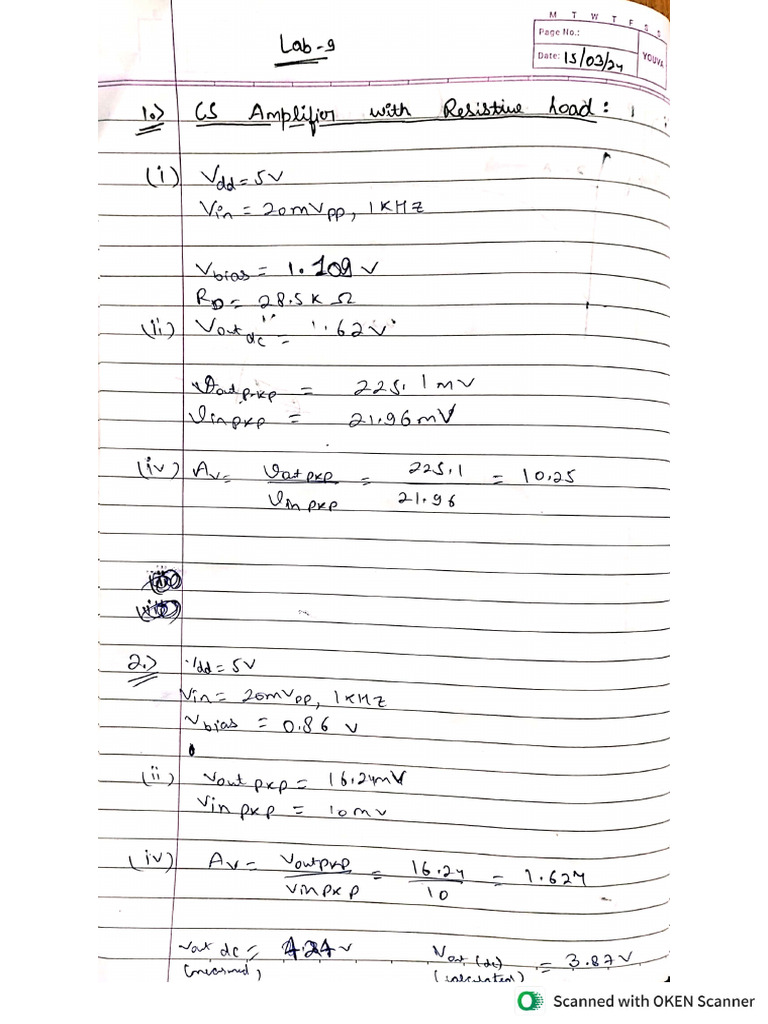 M T W T F S S
Page No.:
Date: 15/03/24
YOUVA
Lab-9
1.> CS Amplifier with Resistive Load:
(i) Vdd = 5V
Vin = 20mVpp, 1KHZ
Vbias = 1.109 V
RD = 28.5K Ω
(ii) Vout dc = 1.62V
Vout pkp = 225.1mV
Vin pkp = 21.96mV
(iv) Av = Vout pkp / Vin pkp = 225.1 / 21.96 = 10.25
2.> Vdd = 5V
Vin = 20mVpp, 1KHZ
Vbias = 0.86 V
(ii) Vout pkp = 16.24mV
Vin pkp = 10mV
(iv) Av = Vout pkp / Vin pkp = 16.24 / 10 = 1.624
Vout dc = 4.24 V
(measured)
Vout (dc) = 3.87V
(calculated)
Scanned with OKEN Scanner